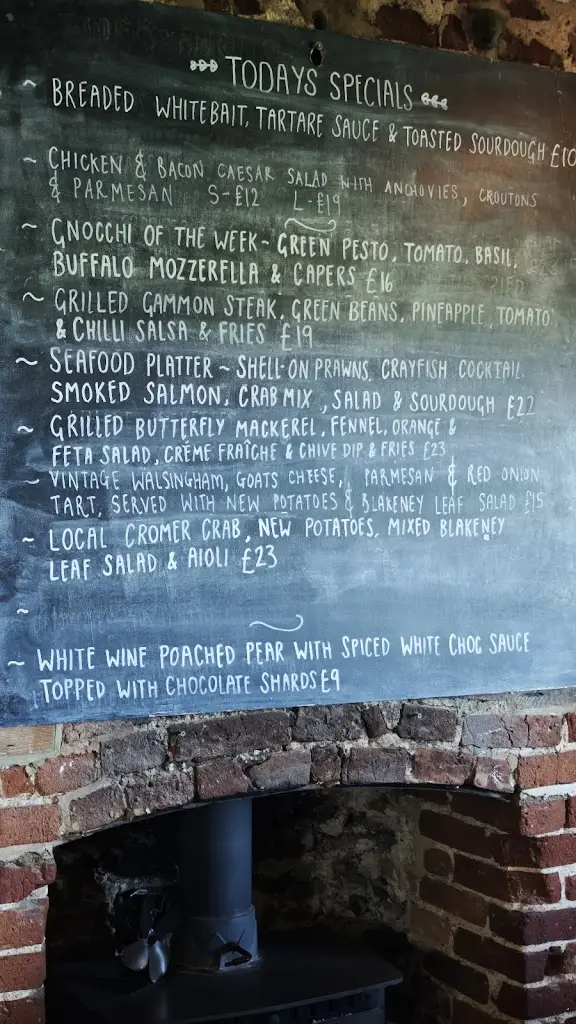 TODAYS SPECIALS
~ BREADED WHITEBAIT, TARTARE SAUCE & TOASTED SOURDOUGH £10
~ CHICKEN & BACON CAESAR SALAD WITH ANCHOVIES, CROUTONS
& PARMESAN S-£12 L-£19
~ GNOCCHI OF THE WEEK - GREEN PESTO, TOMATO, BASIL,
BUFFALO MOZZERELLA & CAPERS £16
~ GRILLED GAMMON STEAK, GREEN BEANS, PINEAPPLE, TOMATO
& CHILLI SALSA & FRIES £19
~ SEAFOOD PLATTER ~ SHELL-ON PRAWNS, CRAYFISH COCKTAIL,
SMOKED SALMON, CRAB MIX, SALAD & SOURDOUGH £22
~ GRILLED BUTTERFLY MACKEREL, FENNEL, ORANGE &
FETA SALAD, CRÈME FRAÎCHE & CHIVE DIP & FRIES £23
~ VINTAGE WALSINGHAM, GOATS CHEESE, PARMESAN & RED ONION
TART, SERVED WITH NEW POTATOES & BLAKENEY LEAF SALAD £15
~ LOCAL CROMER CRAB, NEW POTATOES, MIXED BLAKENEY
LEAF SALAD & AIOLI £23
~
~ WHITE WINE POACHED PEAR WITH SPICED WHITE CHOC SAUCE
TOPPED WITH CHOCOLATE SHARDS £9